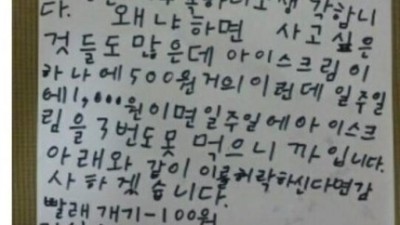 하다고 생각합니
다. 왜냐하면 사고 싶은
것들도 많은데 아이스크림이
하나에 500원 거의 이런데 일주일
에 1,000원이면 일주일에 아이스크
림을 3번도 못 먹으니까입니다.
아래와 같이 이를 허락하신다면 감
사하겠습니다.
빨래 개기-100원